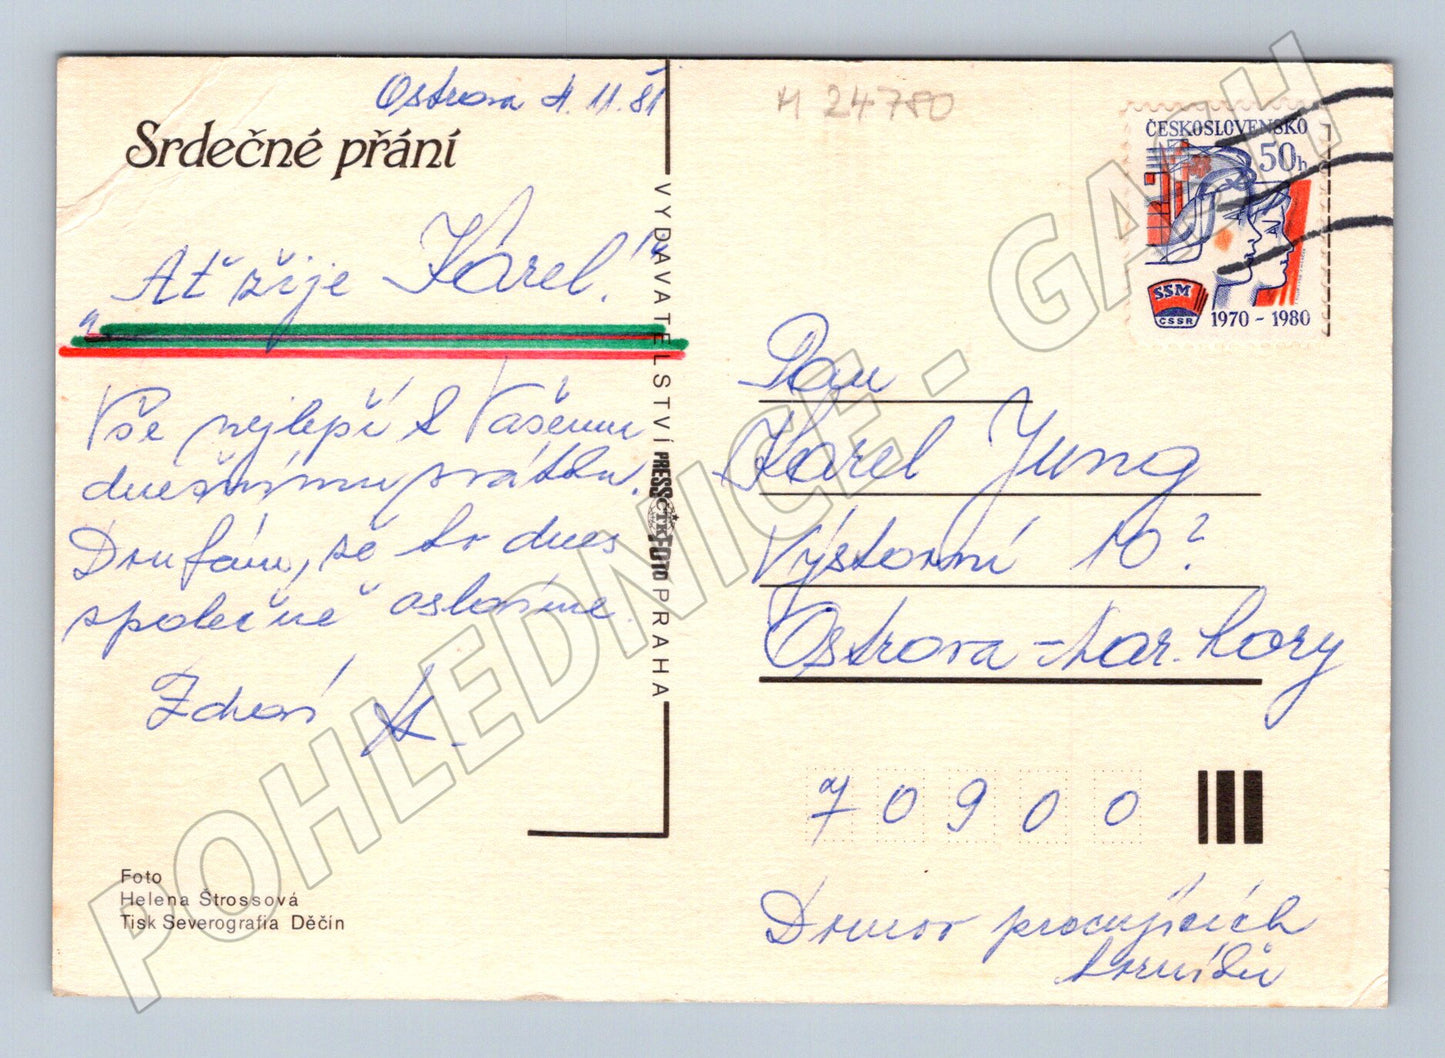 Ostrava 4. 11. 81
Srdečné přání
"Ať žije Karel!"
Vše nejlepší k Vašemu
dnešnímu svátku.
Doufám, že to dnes
společně oslavíme.
Zdraví
Foto
Helena Štrossová
Tisk Severografia Děčín
VYDAVATELSTVÍ PRESSFOTO PRAHA
ČTK
M 24780
ČESKOSLOVENSKO
50h
SSM
ČSSR
1970 - 1980
Pan
Karel Jung
Výstavní 10?
Ostrava - Mar. hory
70900
Domov pracujících
horníků
POHLEDNICE - GAHH